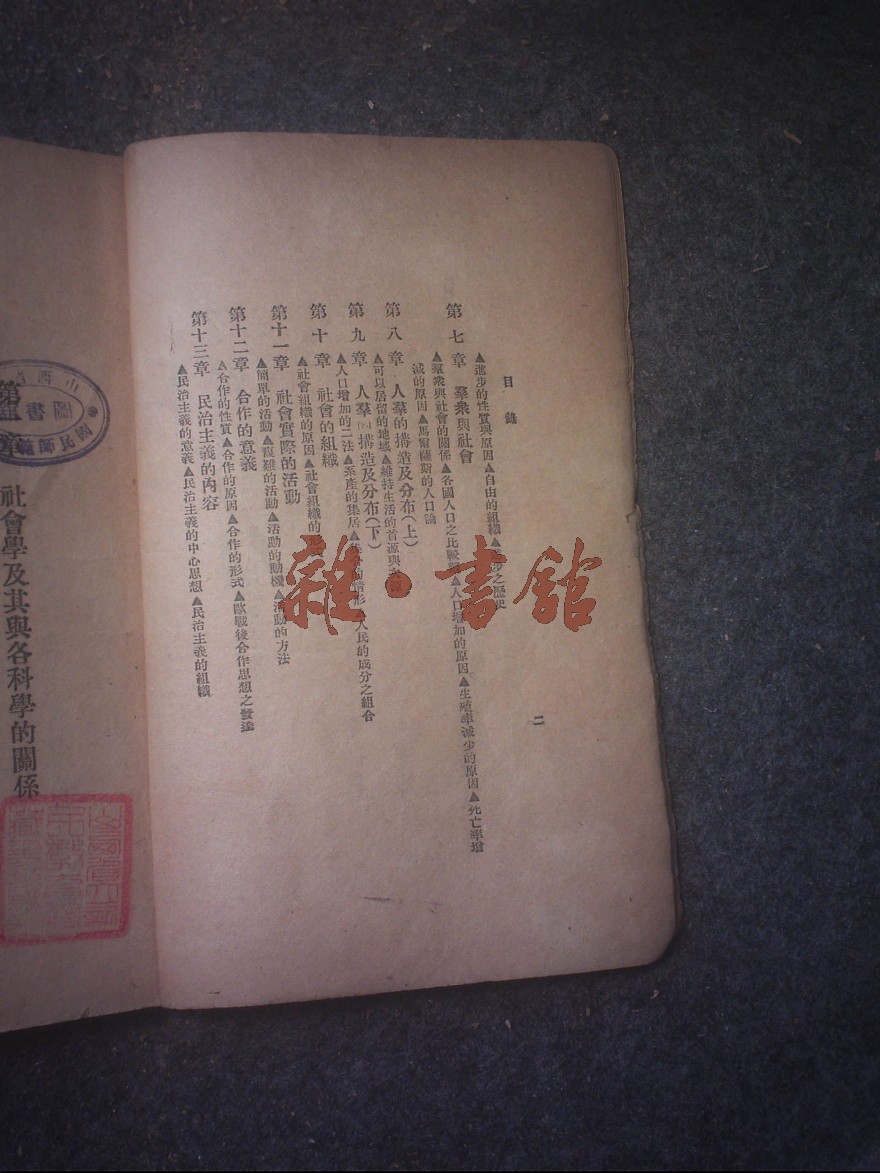 目錄
二
▲進步的性質與原因▲自由的組織▲進步之歷史
第七章 羣衆與社會
▲羣衆與社會的關係▲各國人口之比較▲人口增加的原因▲生殖率減少的原因▲死亡率增
減的原因▲馬爾薩斯的人口論
第八章 人羣的搆造及分布(上)
▲可以居留的地域▲維持生活的首源與
第九章 人羣的搆造及分布(下)
▲人口增加的二法▲系產的集居▲ 情形▲人民的成分之組合
第十章 社會的組織
▲社會組織的原因▲社會組織的形
第十一章 社會實際的活動
▲簡單的活動▲複雜的活動▲活動的動機▲活動的方法
第十二章 合作的意義
▲合作的性質▲合作的原因▲合作的形式▲歐戰後合作思想之發達
第十三章 民治主義的內容
▲民治主義的意義▲民治主義的中心思想▲民治主義的組織
雜·書館
第 章
社會學及其與各科學的關係
圖書